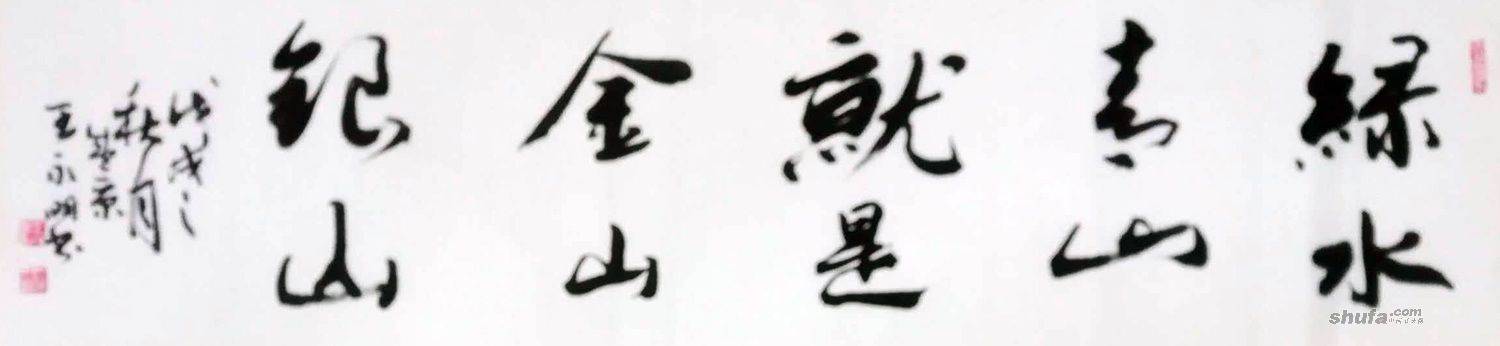 綠水
青山
就是
金山
銀山
戊戌之
秋月
於京
王永明書
shufa.com